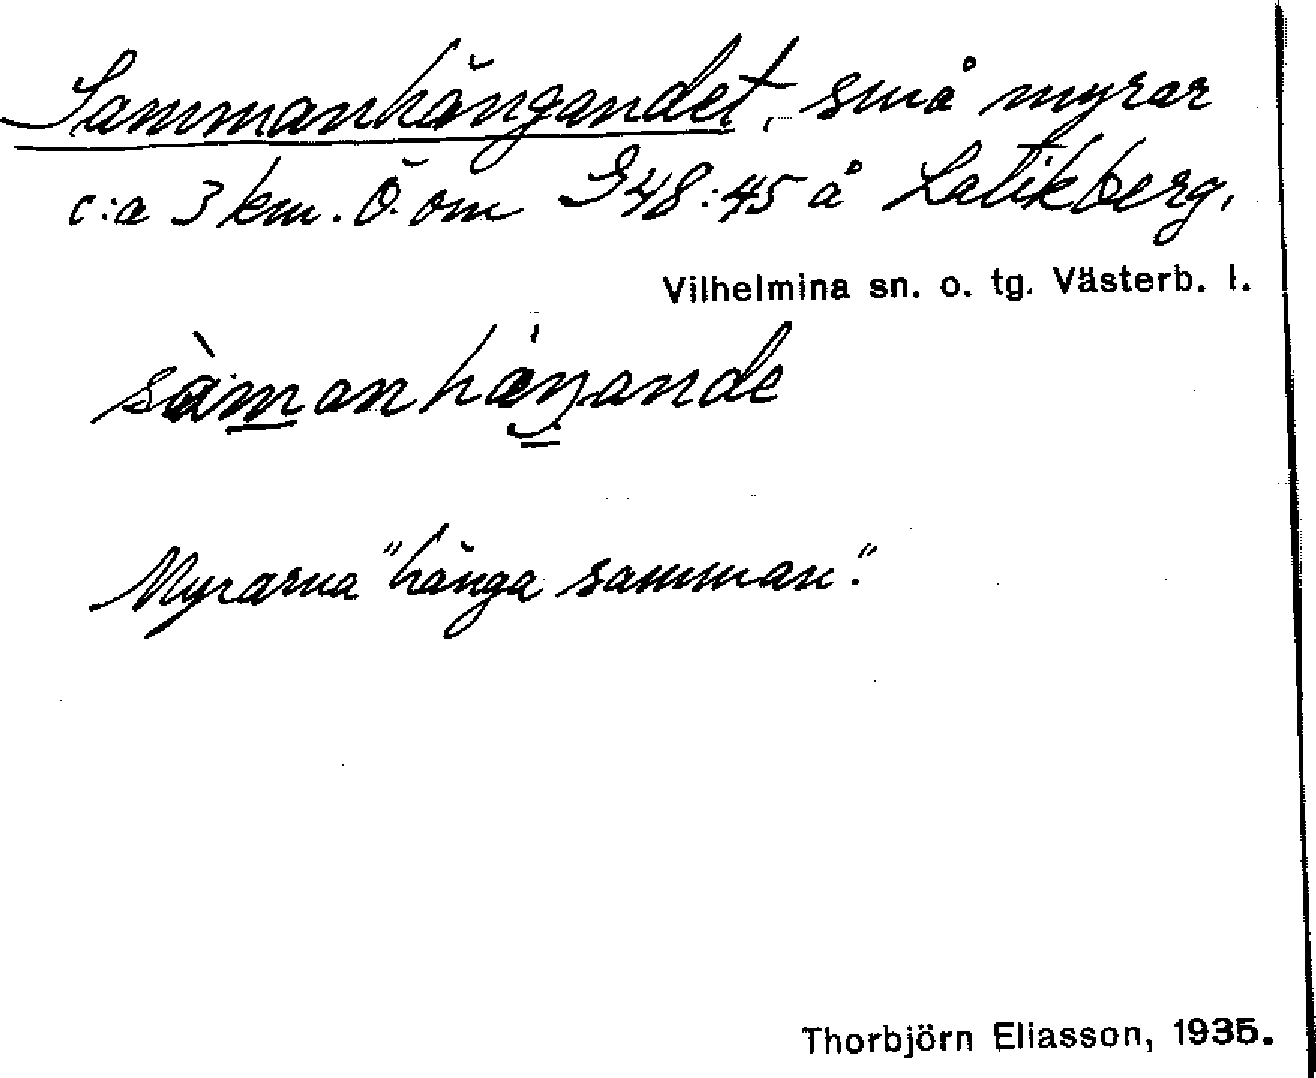 Sammanhängandet, små myrar
c:a 3 km. Ö. om G48:45 å Latikberg,
Vilhelmina sn. o. tg. Västerb. l.
sàmanhäŋande
Myrarna "hänga samman."
Thorbjörn Eliasson, 1935.